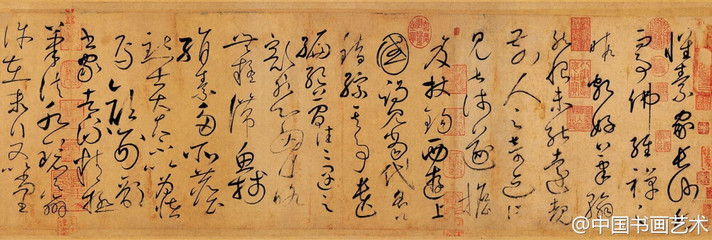 懷素家長沙幼而
事佛經禪之
暇頗好筆翰
然恨未能遠覩
前人之奇迹所
見甚淺遂擔
笈杖錫西遊上
國謁見當代名公
錯綜其事遺
編絕簡往往遇之
豁然心胸略
無疑滯魚牋
絹素多所塵
點士大夫不以為怪
焉顏刑部
書家者流精極
筆法水鏡之辨
許在末行又以尚書
@中国书画艺术